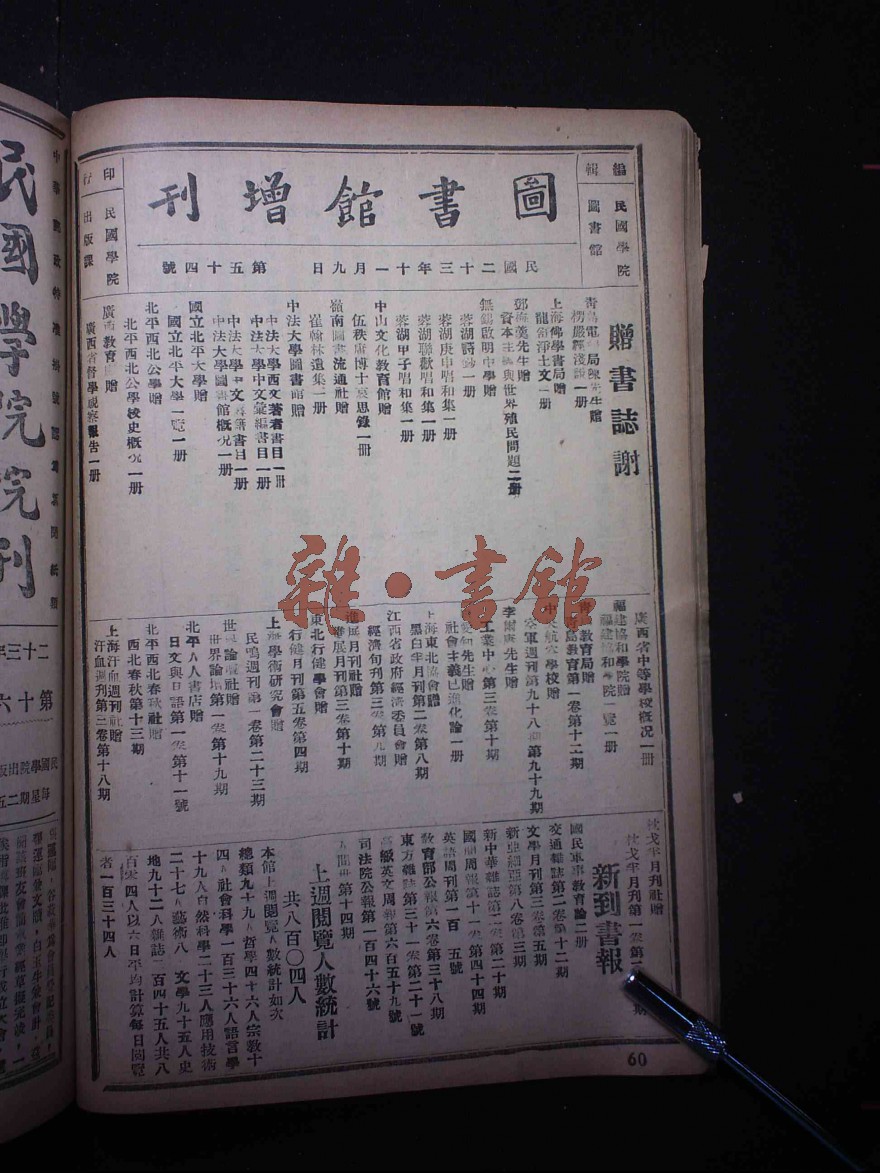 編輯 民國學院圖書館
圖書館增刊
民國二十三年十一月九日 第五十四號
印行 民國學院出版課
贈書誌謝
楞嚴經淺說一册
上海佛學書局贈
龍舒淨土文一册
郭海峯先生贈
資本主義與世界殖民問題二册
無錫啟明中學贈
蓉湖詩鈔一册
蓉湖庚申唱和集一册
蓉湖聯歡唱和集一册
蓉湖甲子唱和集一册
中山文化教育館贈
伍秩庸博士哀思錄一册
嶺南圖書流通社贈
崔翰林遺集一册
中法大學圖書館贈
中法大學西文著者書目一册
中法大學中文彙編書目一册
中法大學中文舊籍書目一册
中法大學圖書館概況一册
國立北平大學贈
國立北平大學一覽一册
北平西北公學贈
北平西北公學校史概況一册
廣西教育廳贈
廣西省督學視察報告一册
廣西省中等學校概況一册
福建協和學院贈
福建協和學院一覽一册
青島教育局贈
青島教育第一卷第十二期
中央航空學校贈
空軍週刊第九十八期第九十九期
李爾康先生贈
工業中心第三卷第十期
先生贈
社會主義已進化論一册
上海東北協會贈
黑白半月刊第二卷第八期
江西省政府經濟委員會贈
經濟旬刊第三卷第九期
進展月刊社贈
進展月刊第三卷第十期
東北行健學會贈
行健月刊第五卷第四期
上海學術研究會贈
民鳴週刊第一卷第二十三期
世界論壇社贈
世界論壇第一卷第十九期
北平人人書店贈
日文與日語第一卷第十一號
北平西北春秋社贈
西北春秋第十三期
上海汗血週刊社贈
汗血週刊第三卷第十八期
枕戈半月刊社贈
枕戈半月刊第一卷第 期
新到書報
國民軍事教育論二册
交通雜誌第二卷第十二期
文學月刊第三卷第五期
新亞細亞第八卷第三期
新中華雜誌第二卷第二十期
國聞周報第十一卷第四十四期
英語周刊第一百 五號
教育部公報第六卷第三十八期
東方雜誌第三十一卷第二十一號
高級英文周報第六百五十九號
司法院公報第一百四十六號
人間世第十四期
上週閱覽人數統計
共八百〇四人
本館上週閱覽人數統計如次
總類九十九人哲學四十六人宗教十
四人社會科學一百三十六人語言學
十九人自然科學二十三人應用技術
二十七人藝術八 文學九十五人史
地九十二人雜誌二百四十五人共八
百零四人以六日平均計算每日閱覽
者一百三十四人
60
雜·書館
民國學院院刊
二十三年
第十六